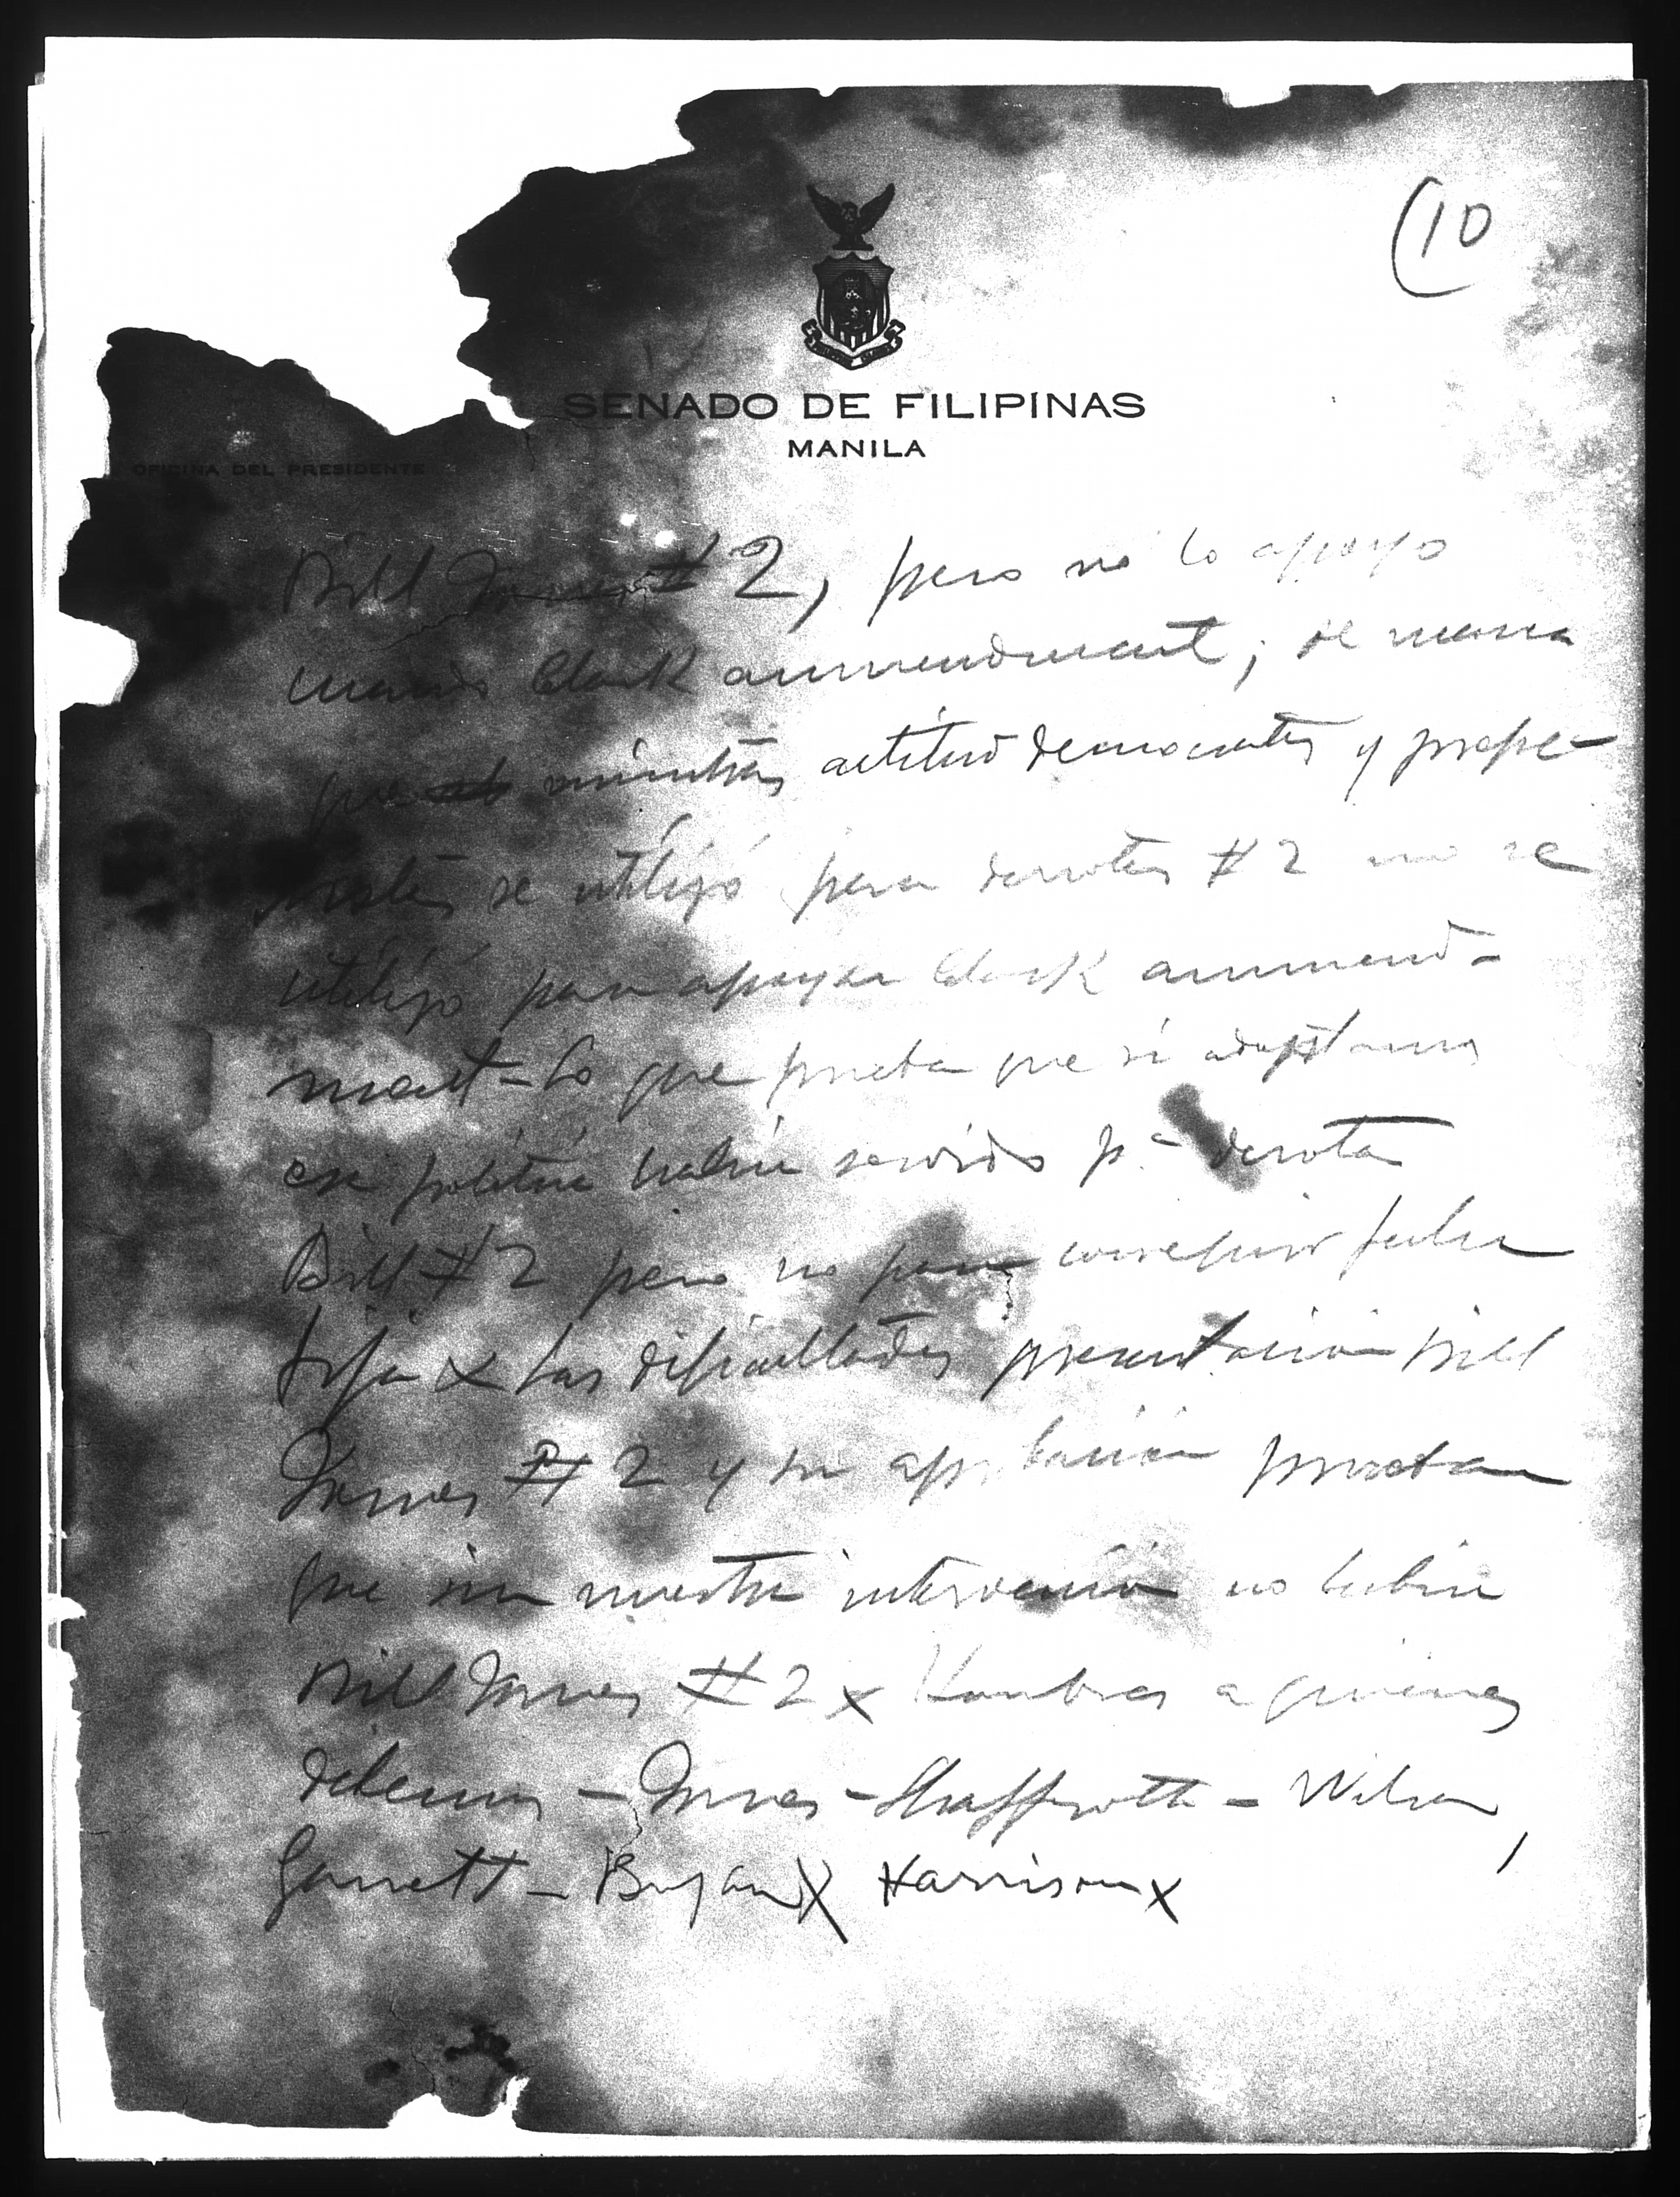 (10
SENADO DE FILIPINAS
MANILA
OFICINA DEL PRESIDENTE
Bill Jones # 2, pero no lo apoyo
cuando Clark ammendment; de manera
que mientras actitud democratas y progre-
sistas se utilizó para derrotar # 2 no se
utilizó para apoyar Clark ammend-
ment - Lo que prueba que si adoptamos
esa politica habria servido pa derrotar
Bill # 2 pero no para conseguir fecha
fija x Las dificultades presentacion bill
Jones # 2 y su aprobacion prueban
que sin nuestra intervencion no habria
Bill Jones # 2 x Hombres a quienes
debemos - Jones - Shaffroth - Wilson,
Garrett - Bryan x Harrison x